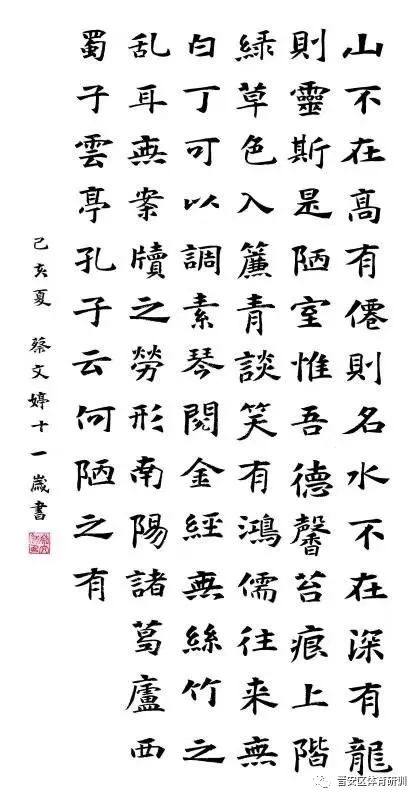 山不在高有僊則名水不在深有龍
則靈斯是陋室惟吾德馨苔痕上階
綠草色入簾青談笑有鴻儒往來無
白丁可以調素琴閱金經無絲竹之
乱耳無案牘之勞形南陽諸葛廬西
蜀子雲亭孔子云何陋之有
己亥夏 蔡文婷十一歲書
晋安区体育研训